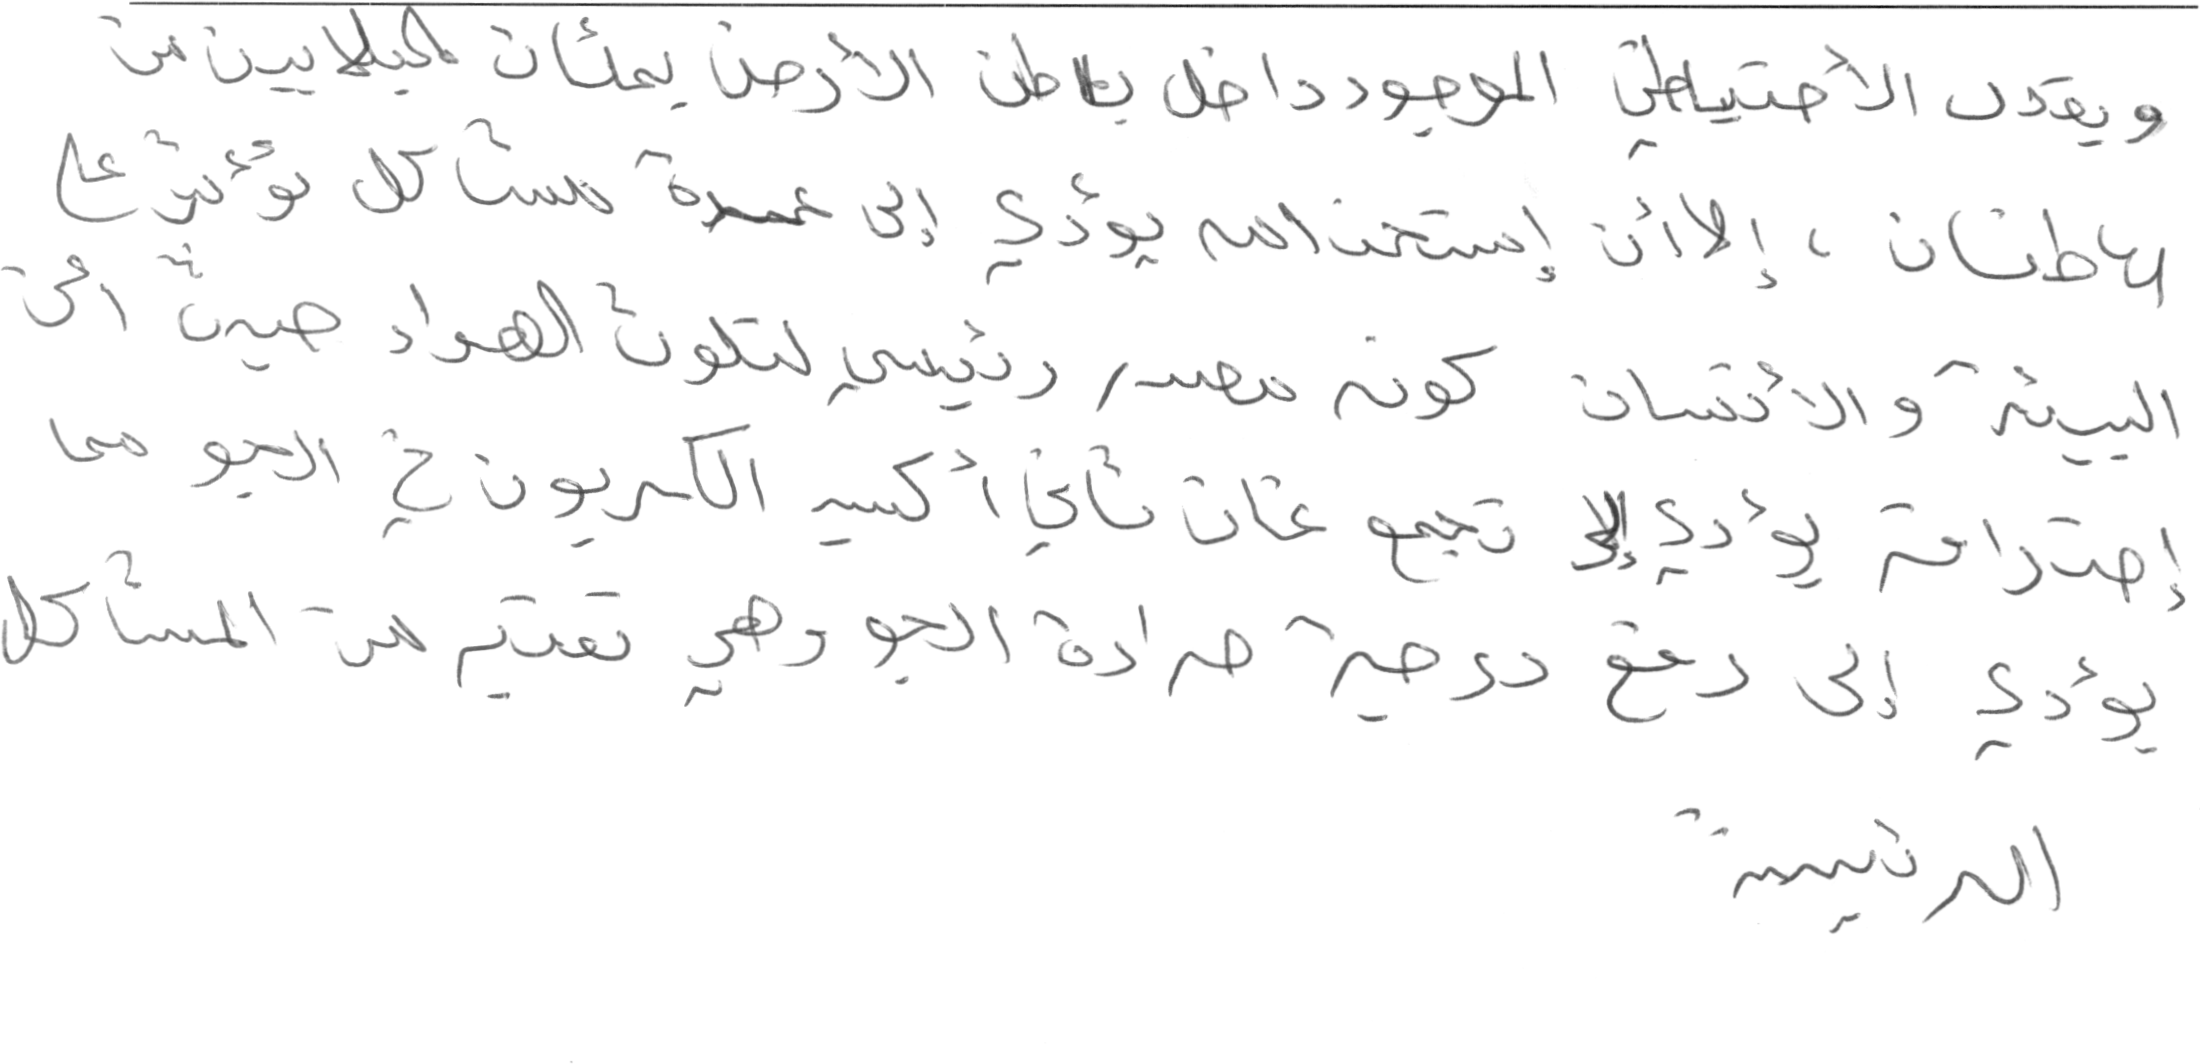 ويقدر الأحتياطي الموجود داخل باطن الأرض بمئات الملايين من
الأطنان ، إلا أن إستخدامه يؤدي إلى عدة مشاكل تؤثر على
البيئة والأنسان كونه مصدر رئيسي لتلوث الهواء حيث أن
إحتراقه يؤدي إلى تجمع غاز ثاني أكسيد الكربون في الجو مما
يؤدي إلى رفع درجة حرارة الجو وهي تعتبر من المشاكل
الرئيسية